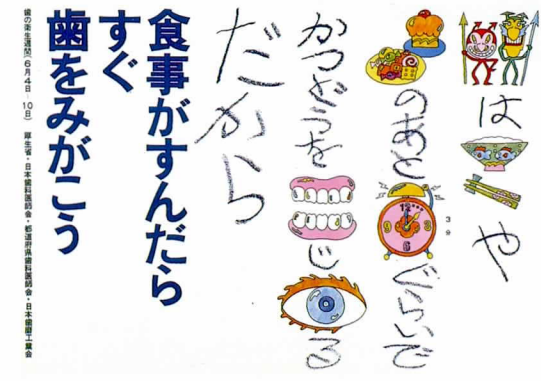 は や
のあと 3分 ぐらいで
かつどうを じ る
だから
食事がすんだら
すぐ
歯をみがこう
歯の衛生週間(6月4日-10日) 厚生省・日本歯科医師会・都道府県歯科医師会・日本歯磨工業会